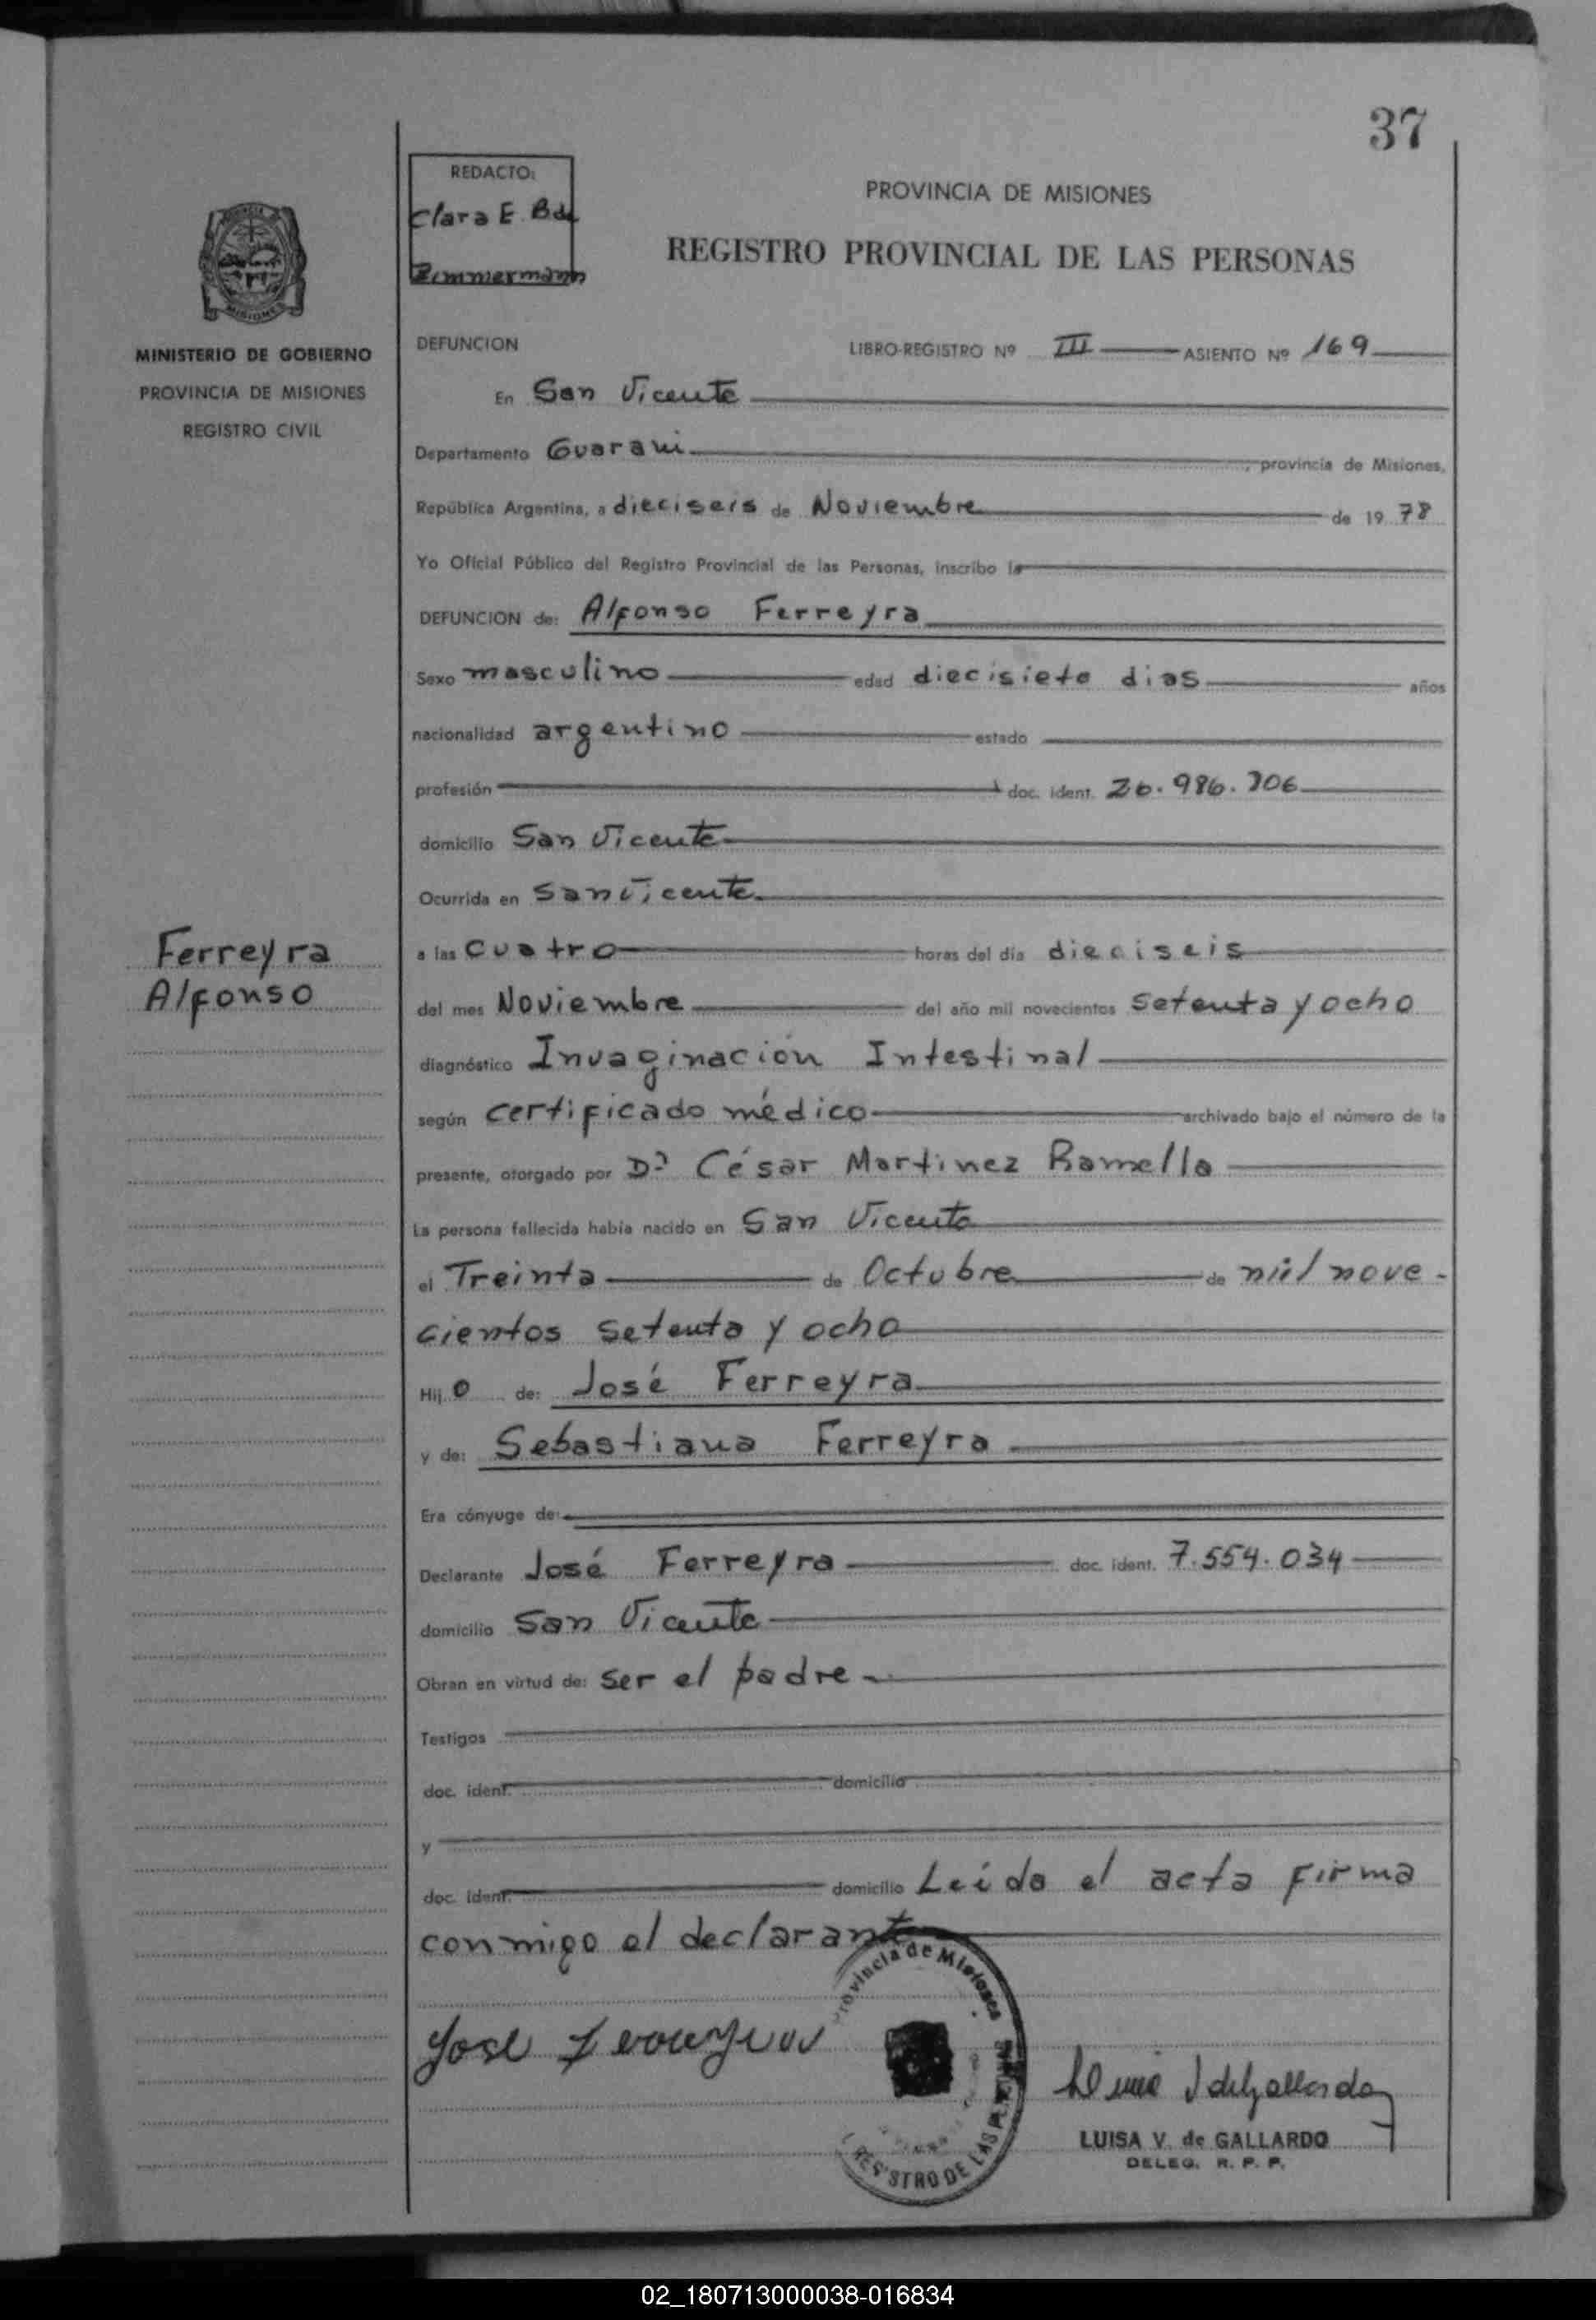 37
REDACTO:
Clara E. B de
Zimmermann
PROVINCIA DE MISIONES
REGISTRO PROVINCIAL DE LAS PERSONAS
MINISTERIO DE GOBIERNO
PROVINCIA DE MISIONES
REGISTRO CIVIL
DEFUNCION LIBRO-REGISTRO Nº III ASIENTO Nº 169
En San Vicente
Departamento Guarani, provincia de Misiones,
República Argentina, a dieciseis de Noviembre de 19 78
Yo Oficial Público del Registro Provincial de las Personas, inscribo la
DEFUNCION de: Alfonso Ferreyra
Sexo masculino edad diecisiete dias años
nacionalidad argentino estado
profesión doc. ident. 26.986.706
domicilio San Vicente
Ocurrida en San Vicente
Ferreyra
Alfonso
a las cuatro horas del día dieciseis
del mes Noviembre del año mil novecientos setenta y ocho
diagnóstico Invaginación Intestinal
según certificado médico archivado bajo el número de la
presente, otorgado por Dr César Martinez Ramella
La persona fallecida había nacido en San Vicente
el Treinta de Octubre de mil nove-
cientos setenta y ocho
Hij o de: José Ferreyra
y de: Sebastiana Ferreyra
Era cónyuge de:
Declarante José Ferreyra doc. ident. 7.554.034
domicilio San Vicente
Obran en virtud de: ser el padre
Testigos
doc. ident. domicilio
y
doc. ident. domicilio Leída el acta firma
conmigo el declarante
Provincia de Misiones
REGISTRO DE LAS PERSONAS
Jose Ferreyra
LUISA V. de GALLARDO
DELEG. R. P. P.
02_180713000038-016834